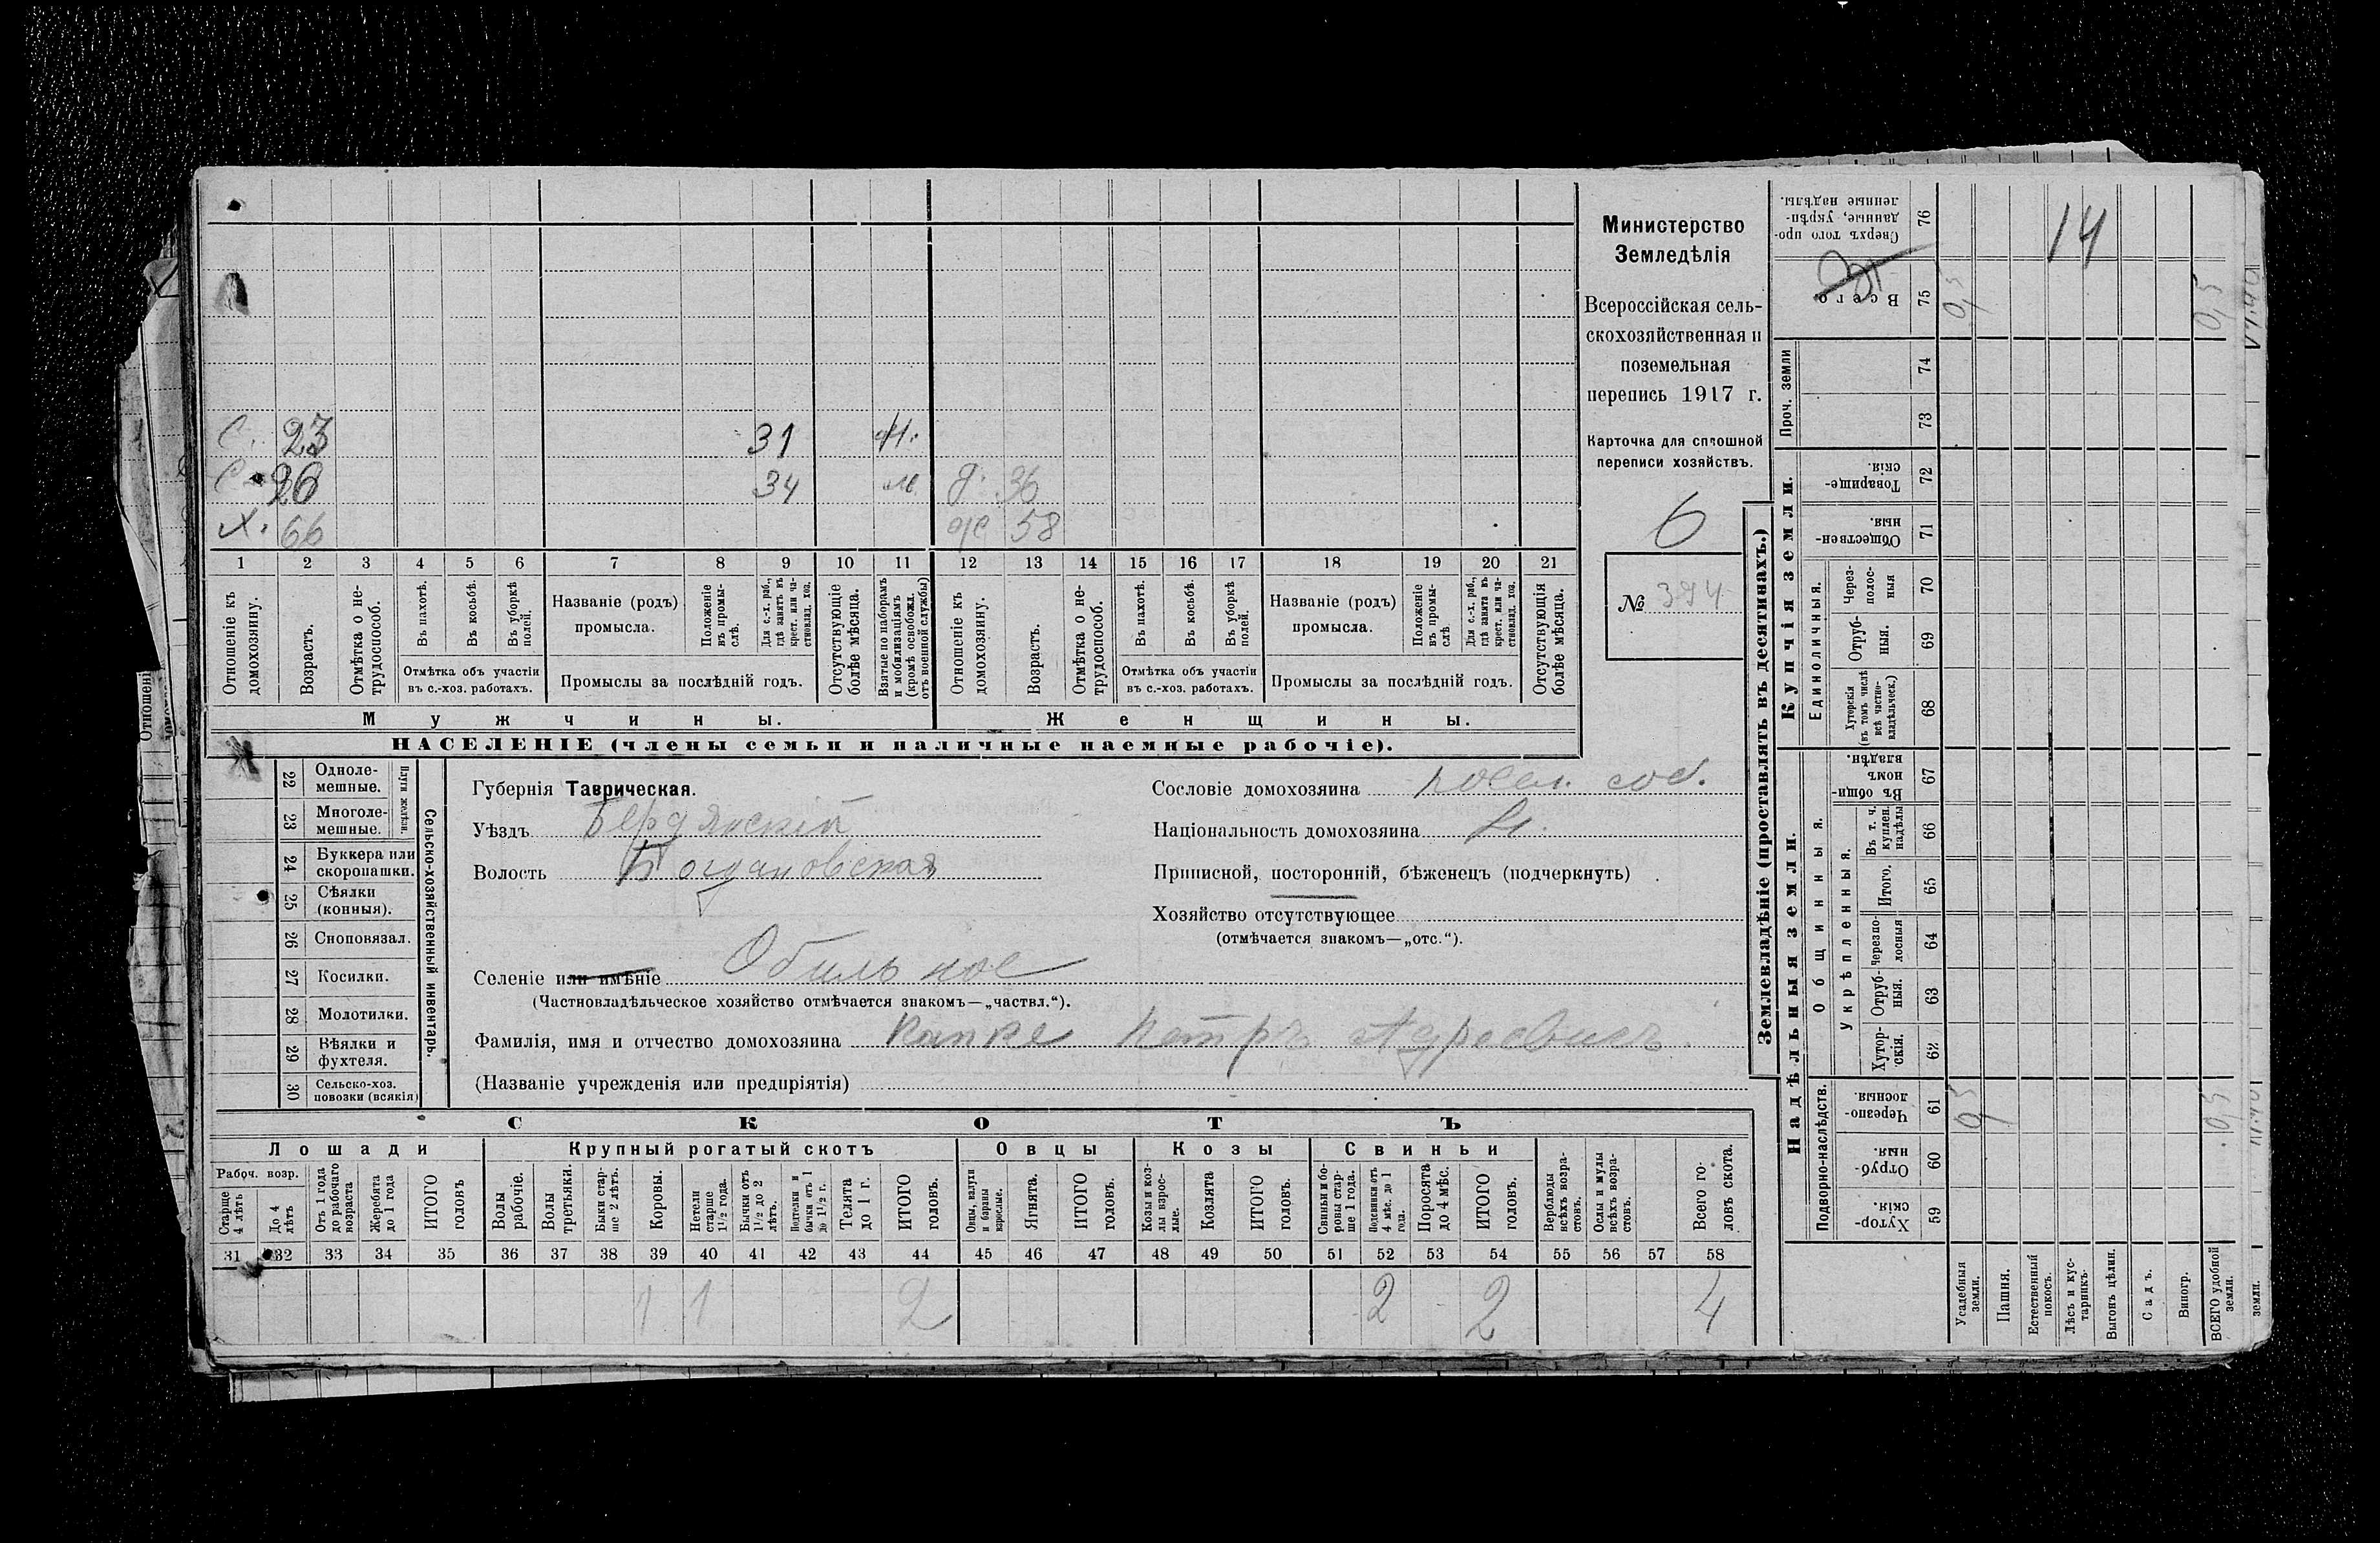 С. 23 31 м.
С. 26 34 м. д. 36
Х. 66 же 58
1 2 3 4 5 6 7 8 9 10 11 12 13 14 15 16 17 18 19 20 21
Отношеніе къ домохозяину.
Возрастъ.
Отмѣтка о не-
трудоспособ.
Въ пахотѣ.
Въ косьбѣ.
Въ уборкѣ полей.
Отмѣтка объ участіи
въ с.-хоз. работахъ.
Названіе (родъ)
промысла.
Положеніе
въ промы-
слѣ.
Для с.-х. раб.,
гдѣ занятъ въ
крест. или ча-
стновлад. хоз.
Промыслы за послѣдній годъ.
Отсутствующіе
болѣе мѣсяца.
Взятые по наборамъ
и мобилизаціямъ
(кромѣ освобожд.
отъ военной службы)
Отношеніе къ
домохозяину.
Возрастъ.
Отмѣтка о не-
трудоспособ.
Въ пахотѣ.
Въ косьбѣ.
Въ уборкѣ
полей.
Отмѣтка объ участіи
въ с.-хоз. работахъ.
Названіе (родъ)
промысла.
Положеніе
въ промы-
слѣ
Для с.-х. раб.,
гдѣ занята въ
крест. или ча-
стновлад. хоз.
Промыслы за послѣдній годъ.
Отсутствующія
болѣе мѣсяца.
Мужчины.
Женщины.
НАСЕЛЕНІЕ (члены семьи и наличные наемные рабочіе).
Министерство
Земледѣлія
Всероссійская сель-
скохозяйственная и
поземельная
перепись 1917 г.
Карточка для сплошной
переписи хозяйствъ.
6
№ 394
22 Одноле-
мешные.
23 Многоле-
мешные.
Плуги желѣзн.
24 Буккера или
скоропашки.
25 Сѣялки
(конныя).
26 Сноповязал.
27 Косилки.
28 Молотилки.
29 Вѣялки и
фухтеля.
30 Сельско-хоз.
повозки (всякія)
Сельско-хозяйственный инвентарь.
Губернія Таврическая.
Уѣздъ Бердянскій
Волость Богдановская
Селеніе или имѣніе Обильное
(Частновладѣльческое хозяйство отмѣчается знакомъ—„частвл.“).
Фамилія, имя и отчество домохозяина Капке Петръ Адресвичъ
(Названіе учрежденія или предпріятія)
Сословіе домохозяина посел. соб.
Національность домохозяина Н.
Приписной, посторонній, бѣженецъ (подчеркнуть)
Хозяйство отсутствующее
(отмѣчается знакомъ—„отс.“).
СКОТЪ
Лошади
Крупный рогатый скотъ
Овцы
Козы
Свиньи
Рабоч. возр.
Старше
4 лѣтъ
До 4
лѣтъ
Отъ 1 года
до рабочаго
возраста
Жеребята
до 1 года
ИТОГО
головъ
Волы
рабочіе.
Волы
третьяки.
Быки стар-
ше 2 лѣтъ.
Коровы.
Нетели
старше
1½ года.
Бычки отъ
1½ до 2
лѣтъ.
Подтелки и
бычки отъ 1
до 1½ г.
Телята
до 1 г.
ИТОГО
головъ.
Овцы, валухи
и бараны
взрослые.
Ягнята.
ИТОГО
головъ.
Козы и коз-
лы взрос-
лые.
Козлята
ИТОГО
головъ.
Свиньи и бо-
ровы стар-
ше 1 года.
Подсвинки отъ
4 мѣс. до 1
года.
Поросята
до 4 мѣс.
ИТОГО
головъ.
Верблюды
всѣхъ возра-
стовъ.
Ослы и мулы
всѣхъ возра-
стовъ.
Всего го-
ловъ скота.
31 32 33 34 35 36 37 38 39 40 41 42 43 44 45 46 47 48 49 50 51 52 53 54 55 56 57 58
1 1 2 2 2 4
Землевладѣніе (проставлять въ десятинахъ.)
Надѣльныя земли.
Купчія земли.
Проч. земли
Подворно-наслѣдств.
Общинныя.
Укрѣпленныя.
Единоличныя.
Хутор-
скія. 59
Отруб-
ныя. 60
Черезпо-
лосныя. 61
Хутор-
скія. 62
Отруб-
ныя. 63
Черезпо-
лосныя 64
Итого. 65
Въ т. ч.
куплен.
надѣлы 66
Въ общи-
номъ
владѣн. 67
Хуторскія
(въ томъ числѣ
всѣ частно-
владѣльческ.) 68
Отруб-
ныя. 69
Через-
полос-
ныя 70
Обществен-
ныя. 71
Товарище-
скія. 72
73
74
Всего 75
Сверхъ того про-
данные, укрѣп-
ленные надѣлы. 76
14
0,5 0,5
0,5 0,5
Усадебныя
земли.
Пашня.
Естественный
покосъ.
Лѣсъ и кус-
тарникъ.
Выгонъ цѣлин.
Садъ.
Виногр.
ВСЕГО удобной
земли.
земли.